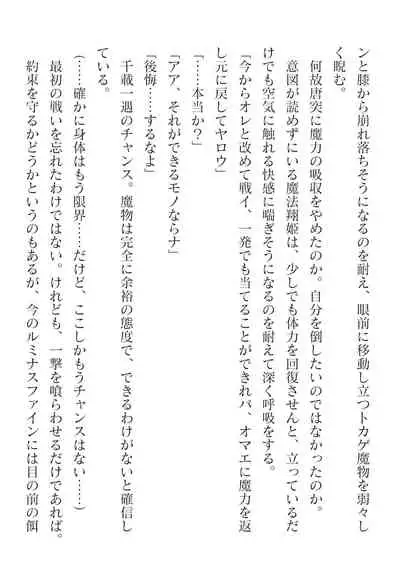 ンと膝から崩れ落ちそうになるのを耐え、眼前に移動し立つトカゲ魔物を弱々し
く睨む。
何故唐突に魔力の吸収をやめたのか。自分を倒したいのではなかったのか。
意図が読めずにいる魔法翔姫は、少しでも体力を回復させんと、立っているだ
けでも空気に触れる快感に喘ぎそうになるのを耐えて深く呼吸をする。
「今からオレと改めて戦イ、一発でも当てることができれバ、オマエに魔力を返
し元に戻してヤロウ」
「……本当か？」
「アア、それができるモノならナ」
「後悔……するなよ」
千載一週のチャンス。魔物は完全に余裕の態度で、できるわけがないと確信し
ている。
（……確かに身体はもう限界……だけど、ここしかもうチャンスはない……）
最初の戦いを忘れたわけではない。けれども、一撃を喰らわせるだけであれば。
約束を守るかどうかというのもあるが、今のルミナスファインには目の前の餌